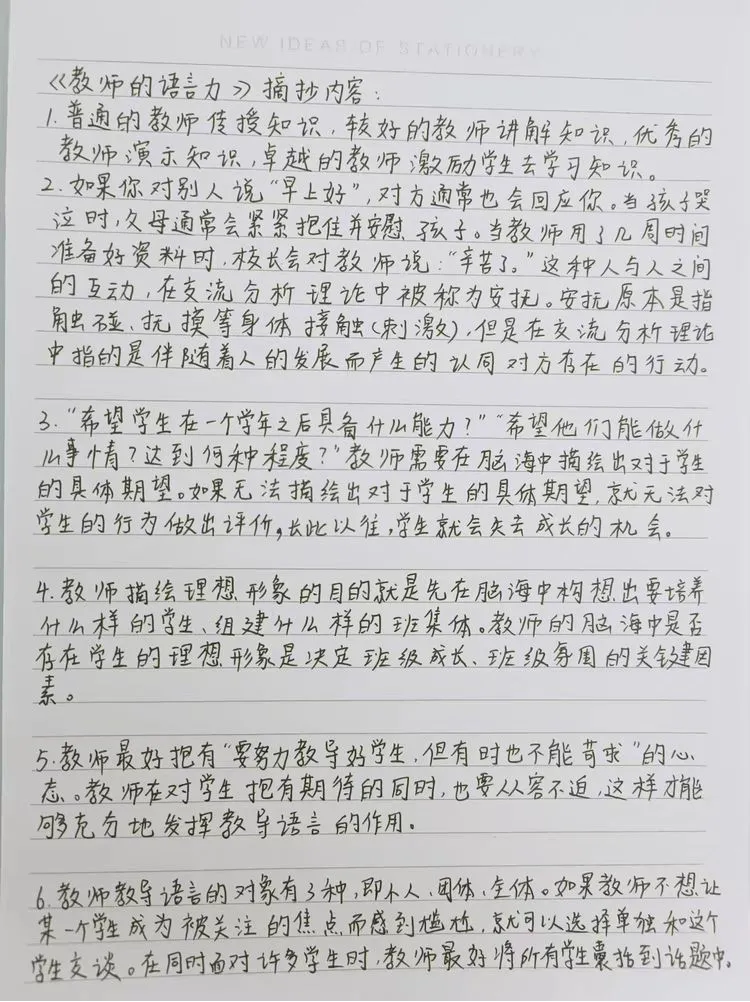 NEW IDEAS OF STATIONERY
《教师的语言力》摘抄内容：
1.普通的教师传授知识，较好的教师讲解知识，优秀的
教师演示知识，卓越的教师激励学生去学习知识。
2.如果你对别人说“早上好”，对方通常也会回应你。当孩子哭
泣时，父母通常会紧紧抱住并安慰孩子。当教师用了几周时间
准备好资料时，校长会对教师说：“辛苦了。”这种人与人之间
的互动，在交流分析理论中被称为安抚。安抚原本是指
触碰、抚摸等身体接触(刺激)，但是在交流分析理论
中指的是伴随着人的发展而产生的认同对方存在的行动。
3.“希望学生在一个学年之后具备什么能力？”“希望他们能做什
么事情？达到何种程度？”教师需要在脑海中描绘出对于学生
的具体期望。如果无法描绘出对于学生的具体期望，就无法对
学生的行为做出评价，长此以往，学生就会失去成长的机会。
4.教师描绘理想形象的目的就是先在脑海中构想出要培养
什么样的学生、组建什么样的班集体。教师的脑海中是否
存在学生的理想形象是决定班级成长、班级氛围的关键因
素。
5.教师最好抱有“要努力教导好学生，但有时也不能苛求”的心
态。教师在对学生抱有期待的同时，也要从容不迫，这样才能
够充分地发挥教导语言的作用。
6.教师教导语言的对象有3种，即个人、团体、全体。如果教师不想让
某一个学生成为被关注的焦点而感到尴尬，就可以选择单独和这个
学生交谈。在同时面对许多学生时，教师最好将所有学生囊括到话题中。